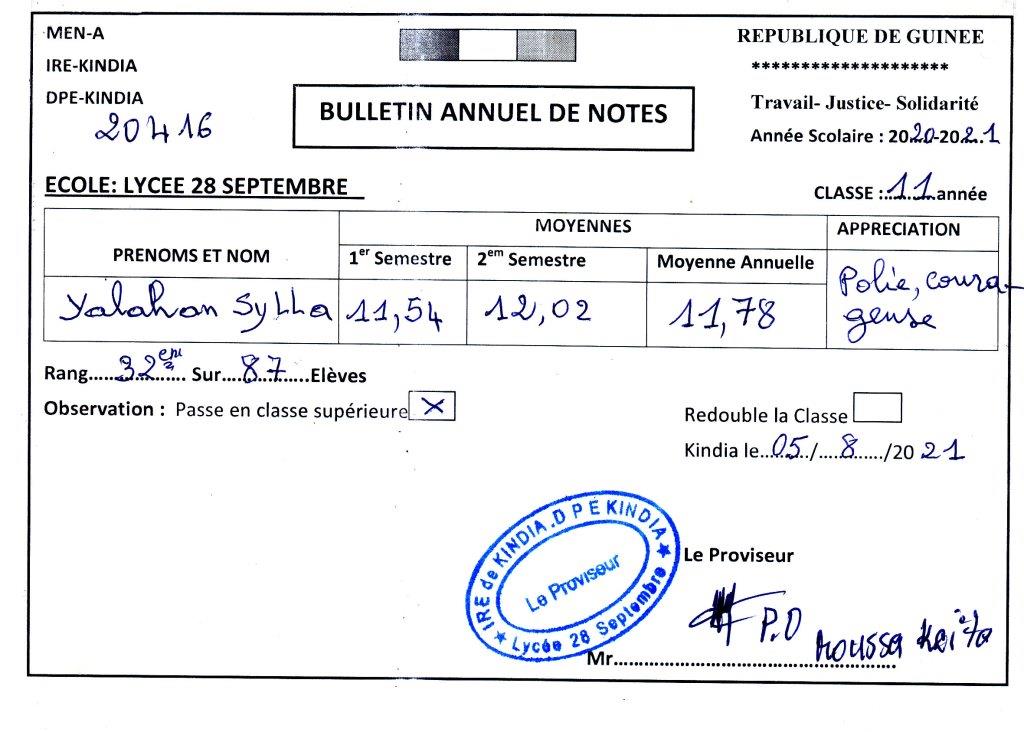 MEN-A
IRE-KINDIA
DPE-KINDIA
20416
REPUBLIQUE DE GUINEE
********************
Travail- Justice- Solidarité
Année Scolaire : 2020-2021
BULLETIN ANNUEL DE NOTES
ECOLE: LYCEE 28 SEPTEMBRE
CLASSE :11année
PRENOMS ET NOM
MOYENNES
APPRECIATION
1er Semestre
2em Semestre
Moyenne Annuelle
Yalahan Sylla
11,54
12,02
11,78
Polie, coura-
geuse
Rang......32ème...... Sur....87.......Elèves
Observation : Passe en classe supérieure X
Redouble la Classe
Kindia le..05../....8...../20 21
IRE de KINDIA.DPE KINDIA
Le Proviseur
Lycée 28 Septembre
Le Proviseur
P.O
Mr................ Moussa Keïta